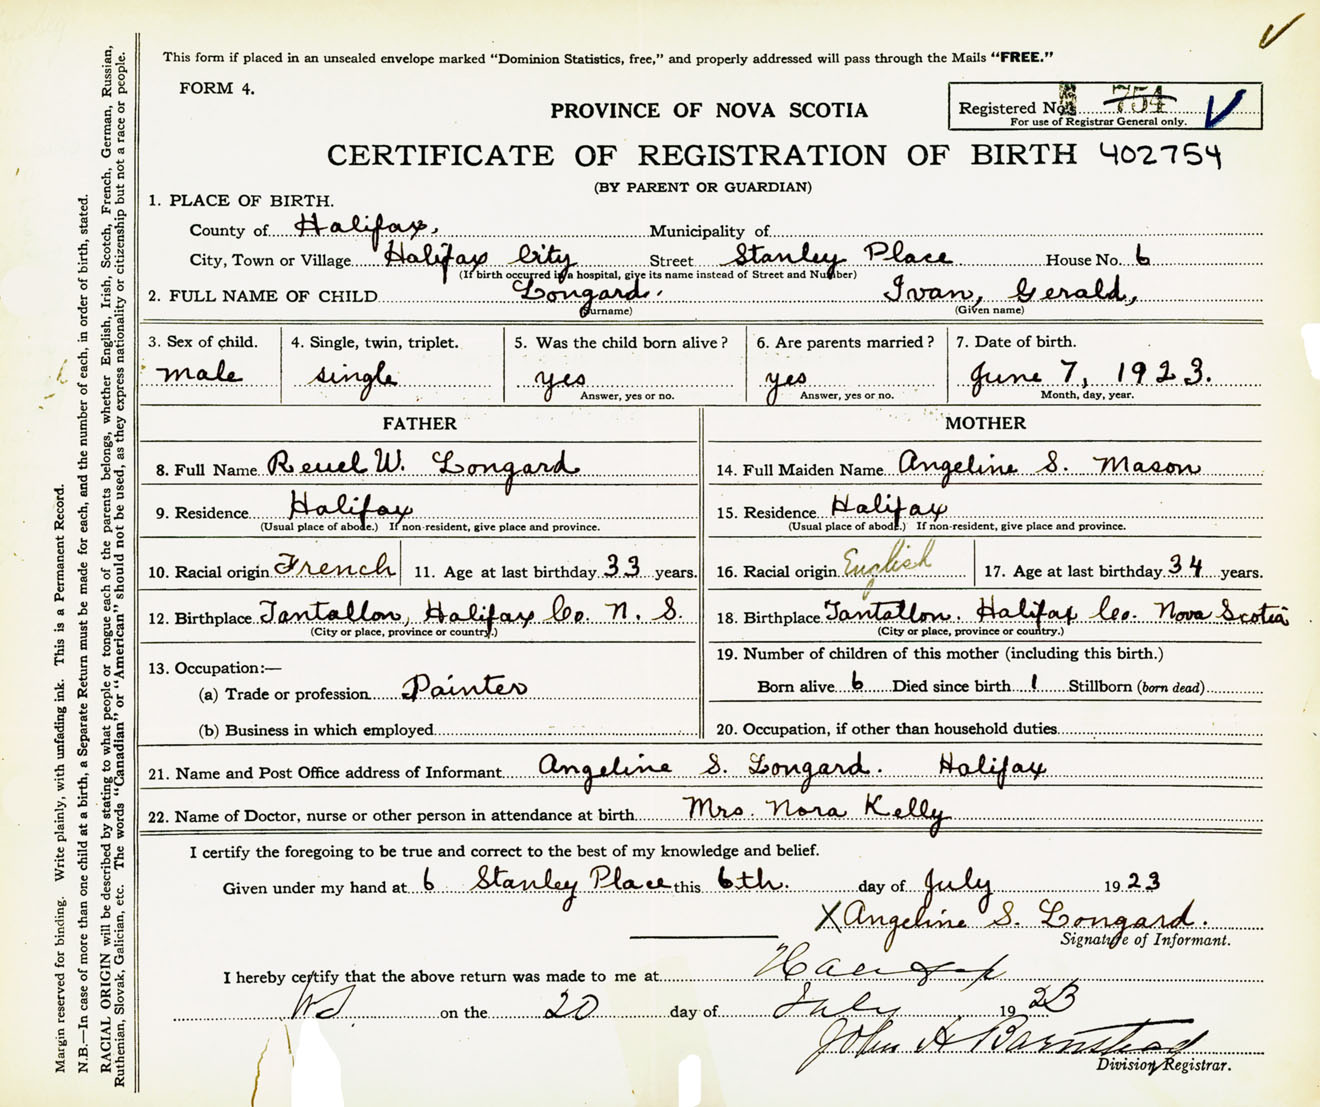 This form if placed in an unsealed envelope marked "Dominion Statistics, free," and properly addressed will pass through the Mails "FREE."
FORM 4.
PROVINCE OF NOVA SCOTIA
Registered No. 754
For use of Registrar General only.
CERTIFICATE OF REGISTRATION OF BIRTH 402754
(BY PARENT OR GUARDIAN)
1. PLACE OF BIRTH.
County of Halifax, Municipality of
City, Town or Village Halifax City Street Stanley Place House No. 6
(If birth occurred in a hospital, give its name instead of Street and Number)
2. FULL NAME OF CHILD Longard. Ivan, Gerald,
(Surname) (Given name)
3. Sex of child. 4. Single, twin, triplet. 5. Was the child born alive? 6. Are parents married? 7. Date of birth.
male single yes yes June 7, 1923.
Answer, yes or no. Answer, yes or no. Month, day, year.
FATHER MOTHER
8. Full Name Reuel W. Longard 14. Full Maiden Name Angeline S. Mason
9. Residence Halifax 15. Residence Halifax
(Usual place of abode.) If non-resident, give place and province. (Usual place of abode.) If non-resident, give place and province.
10. Racial origin French 11. Age at last birthday 33 years. 16. Racial origin English 17. Age at last birthday 34 years.
12. Birthplace Tantallon, Halifax Co. N. S. 18. Birthplace Tantallon. Halifax Co. Nova Scotia
(City or place, province or country.) (City or place, province or country.)
13. Occupation:— 19. Number of children of this mother (including this birth.)
(a) Trade or profession Painter Born alive 6 Died since birth 1 Stillborn (born dead)
(b) Business in which employed 20. Occupation, if other than household duties
21. Name and Post Office address of Informant Angeline S. Longard. Halifax
22. Name of Doctor, nurse or other person in attendance at birth Mrs. Nora Kelly
I certify the foregoing to be true and correct to the best of my knowledge and belief.
Given under my hand at 6 Stanley Place this 6th. day of July 1923
X Angeline S. Longard.
Signature of Informant.
I hereby certify that the above return was made to me at Halifax
NS. on the 20 day of July 1923
John A Barnstead
Division Registrar.
Margin reserved for binding. Write plainly, with unfading ink. This is a Permanent Record.
N.B.—In case of more than one child at a birth, a Separate Return must be made for each, and the number of each, in order of birth, stated.
RACIAL ORIGIN will be described by stating to what people or tongue each of the parents belongs, whether English, Irish, Scotch, French, German, Russian,
Ruthenian, Slovak, Galician, etc. The words "Canadian" or "American" should not be used, as they express nationality or citizenship but not a race or people.